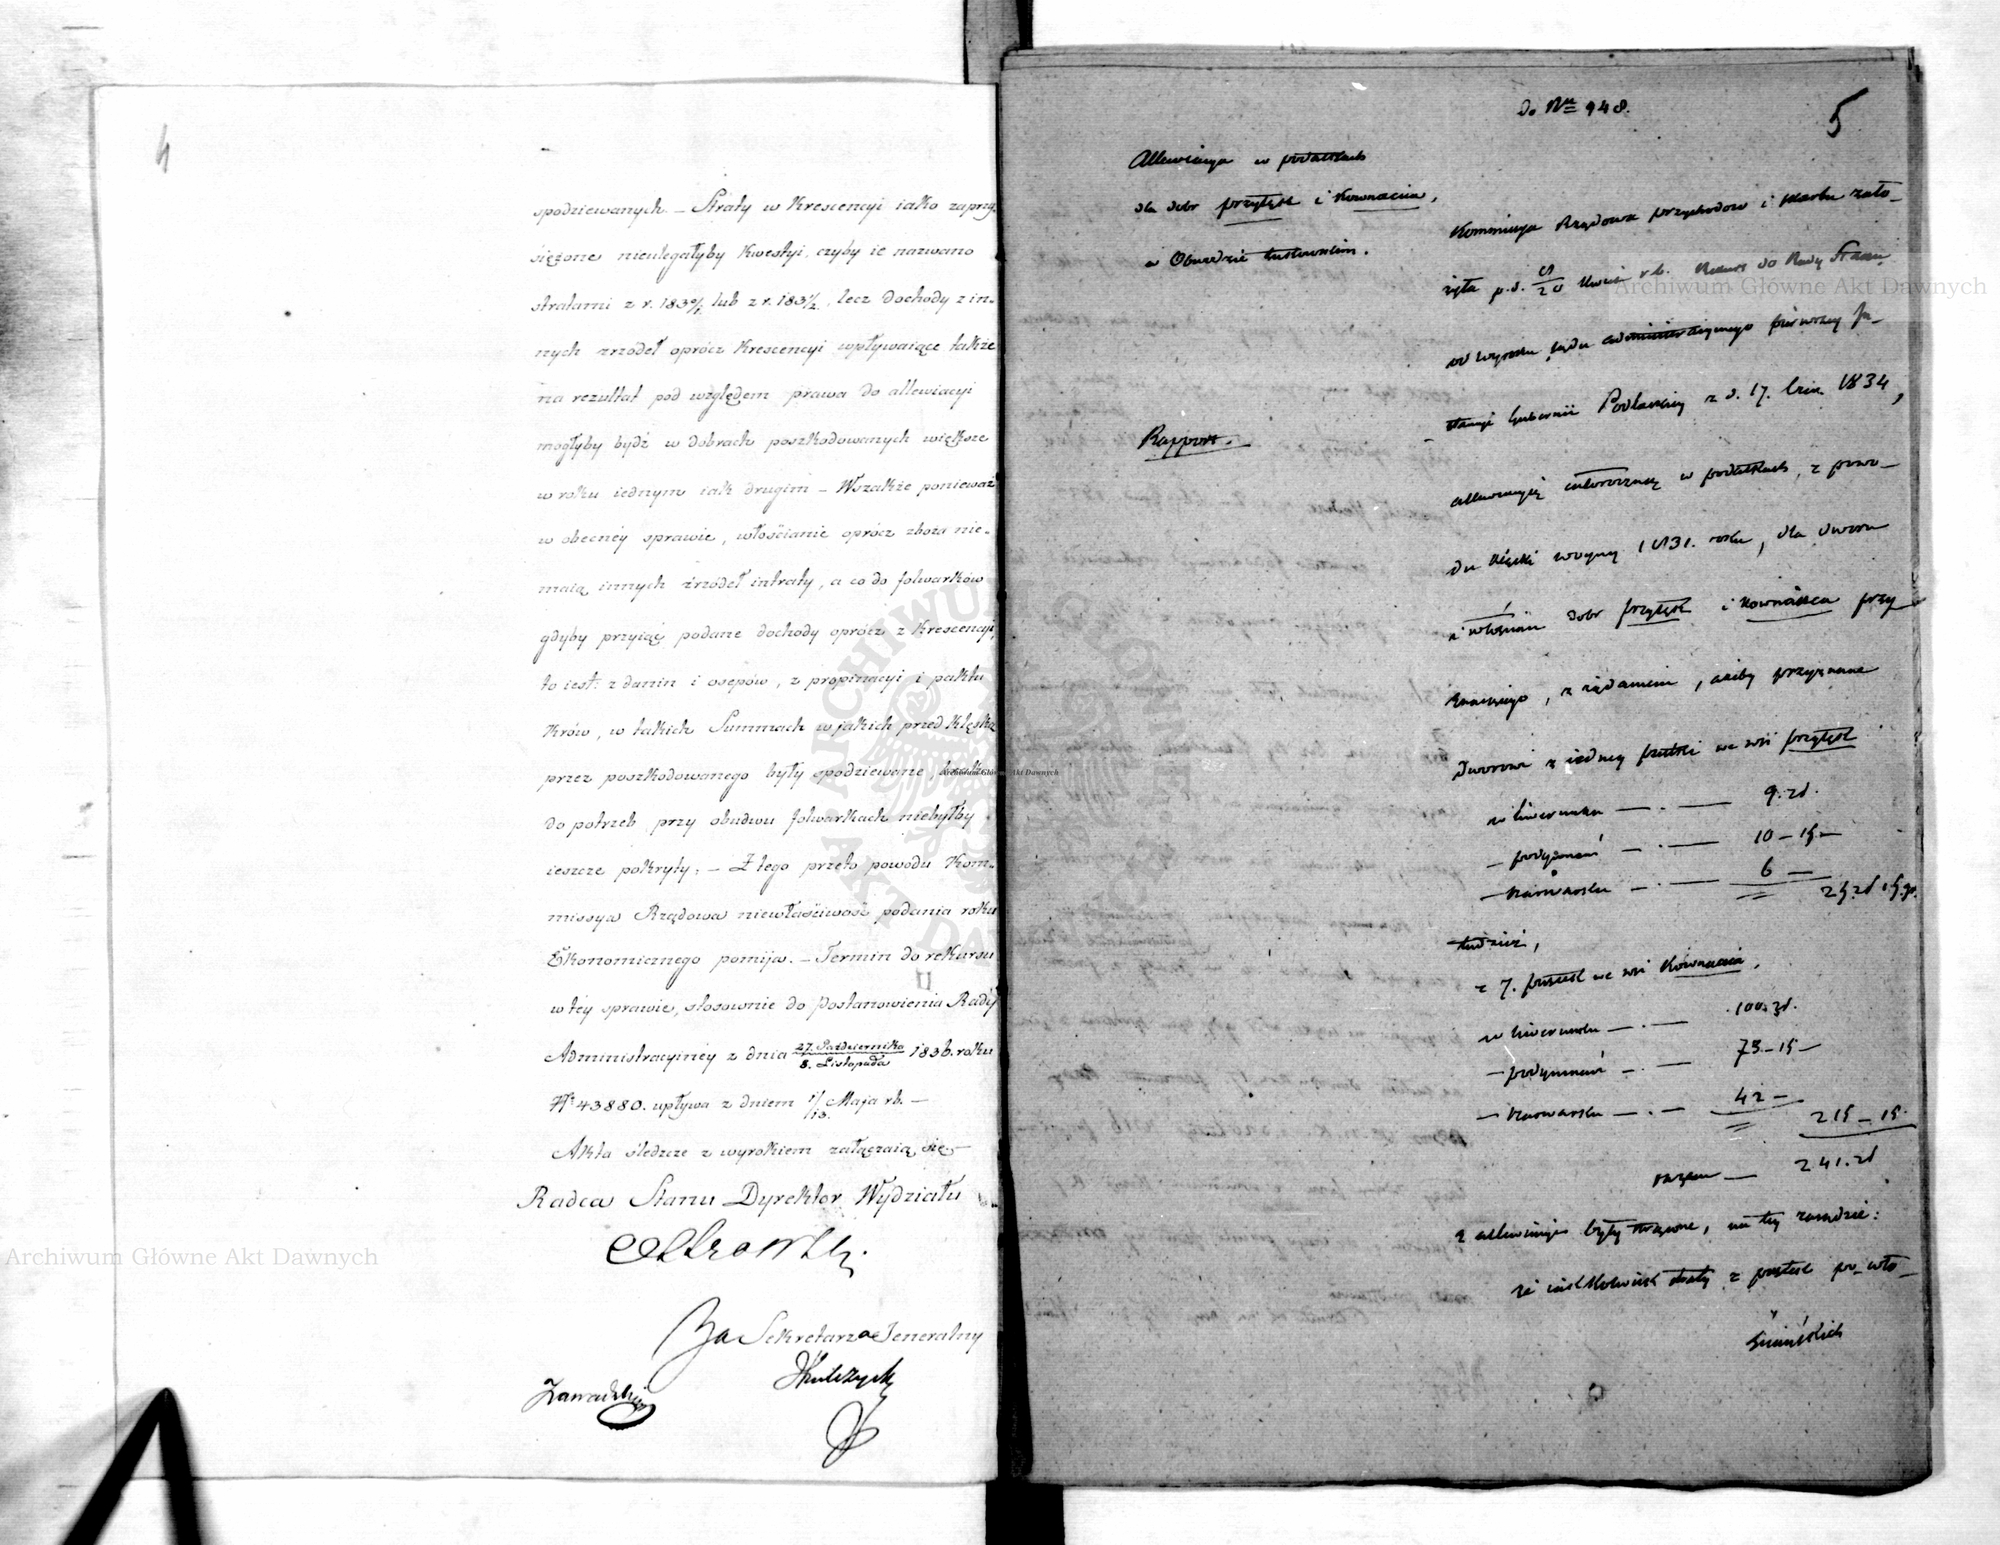 4
spodziewanych. — Straty w Krescencyi iako zaprzy-
siężone nieulegałyby Kwestyi, czyby ie nazwano
stratami z r. 1830/1 lub z r. 1831/2, lecz dochody z in-
nych źrzódeł oprócz Krescencyi wpływaiące także
na rezultat pod względem prawa do allewiacyi
mogłyby bydź w dobrach poszkodowanych większe
w roku iednym iak drugim — Wszakże ponieważ
w obecnéy sprawie, włościanie oprócz zboża nie-
maią innych źrzódeł intraty, a co do folwarków
gdyby przyiąć podane dochody oprócz z Krescencyi,
to iest: z danin i osepów, z propinacyi i paktu
Krów, w takich Summach w jakich przed Klęską
przez poszkodowanego były spodziewane, brak
do potrzeb przy obudwu folwarkach niebyłby
ieszcze pokryty; — Z tego przeto powodu Kom-
missya Rządowa niewłaściwość podania roku
Ekonomicznego pomija. — Termin do rekursu
w téy sprawie, stosownie do Postanowienia Rady
Administracyinéy z dnia 27. Października / 8. Listopada 1836. roku
Nº 43880. upływa z dniem 1/13. Maja rb. —
Akta śledcze z wyrokiem załączaią się —
Radca Stanu Dyrektor Wydziału
Za Sekretarza Jeneralny
Zawadzki
5
Do Nru 948.
Allewiacya w podatkach
dla dóbr Przytęk i Kownacica,
w Obwodzie Łukowskim.
Rapport.
Kommissya Rządowa przychodów i skarbu zało-
żyła p. d. 8/20 Kwiet. r.b. Rekurs do Rady Stanu
od wyroku sądu administracyjnego pierwszej In-
stancyi Gubernii Podlaskiey z d. 17. 1834,
allewiacyią całoroczną w podatkach, z powo-
du klęski woyny 1831. roku, dla dworu
i włościan dóbr Przytęk i Kownacica przy-
znaiącego, z żądaniem, ażeby przyznane
Dworowi z iedney pustki we wsi Przytęk
w liwerunku — . — 9. zł.
— podymnéi — . — 10 — 15 —
— szarwarku — . — 6 — 25 zł 15 gr.
tudzież,
z 7. pustek we wsi Kownacica,
w liwerunku — . — 100. zł.
— podymnéi — . — 73 — 15 —
— szarwarku — . — 42 — 215 — 15.
razem — 241. zł
z allewiacyi były strącone, na tey zasadzie:
że iakkolwiek straty z pustek po wło-
ściańskich
Archiwum Główne Akt Dawnych
Archiwum Główne Akt Dawnych
Archiwum Główne Akt Dawnych